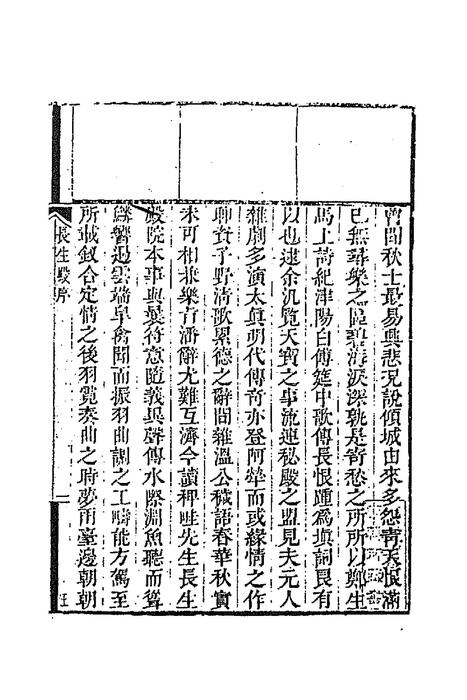 嘗聞秋士最易興悲況說傾城由來多怨青天恨滿
已無尋樂之區碧海淚深孰是寄愁之所所以鄭生
馬上詩紀津陽白傅筵中歌傳長恨踵為塡詞良有
以也逮余汎覧天寶之事流連秘殿之盟見夫元人
雜劇多演太眞明代傳奇亦登阿犖而或緣情之作
聊資子野清歌累德之辭間雜溫公穢語春華秋實
未可相兼樂旨潘辭尤難互濟今讀稗畦先生長生
殿院本事與曩符意隨義異聲傳水際淵魚聽而聳
鱗響遏雲端皐禽聞而振羽曲調之工疇能方駕至
所載釵合定情之後羽霓奏曲之時夢雨臺邊朝朝
長生殿序